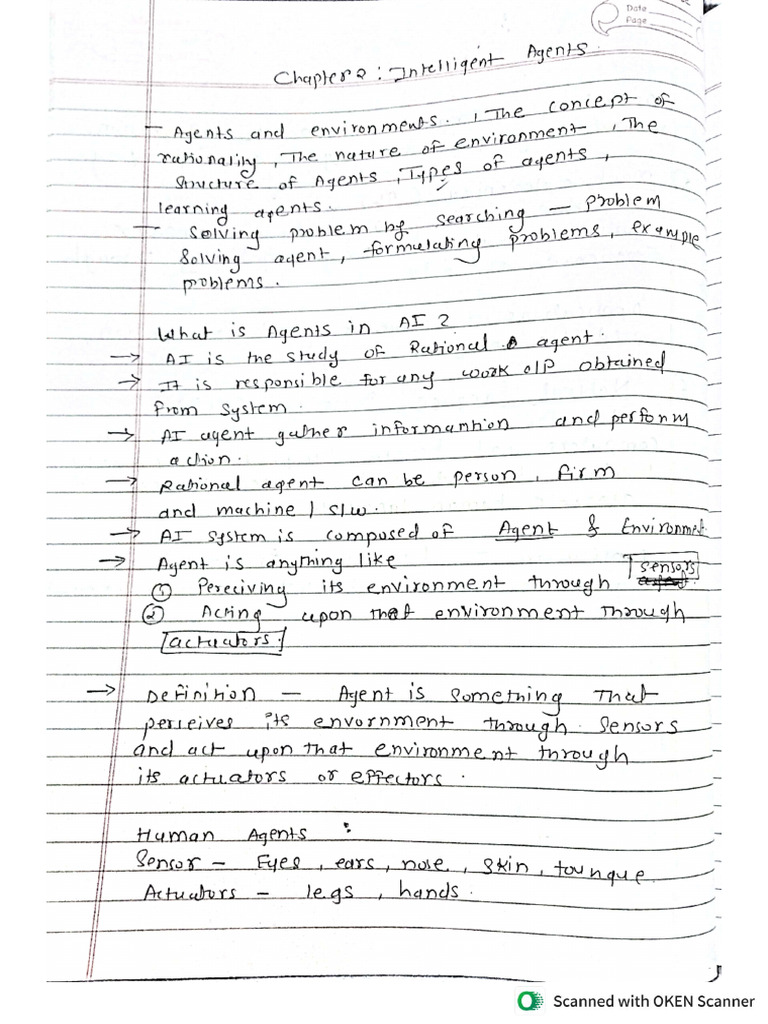 Date
Page
Chapter 2 : Intelligent Agents.
- Agents and environments. , The concept of
rationality, The nature of environment, The
Structure of Agents, Types of agents,
learning agents.
- Solving problem by searching - problem
Solving agent, formulating problems, example
problems.
What is Agents in AI ?
→ AI is the study of Rational agent.
→ It is responsible for any work o/P obtained
from system.
→ AI agent gather informantion and perform
action.
→ Rational agent can be person, firm
and machine / s/w.
→ AI System is composed of Agent & Environment
→ Agent is anything like
① Pereciving its environment through sensors.
② Acting upon that environment through
actuators.
→ Definition - Agent is something that
perceives its envornment through sensors
and act upon that environment through
its actuators or effectors.
Human Agents :
Sensor - Eyes, ears, nose, skin, toungue.
Actuators - legs, hands.
Scanned with OKEN Scanner